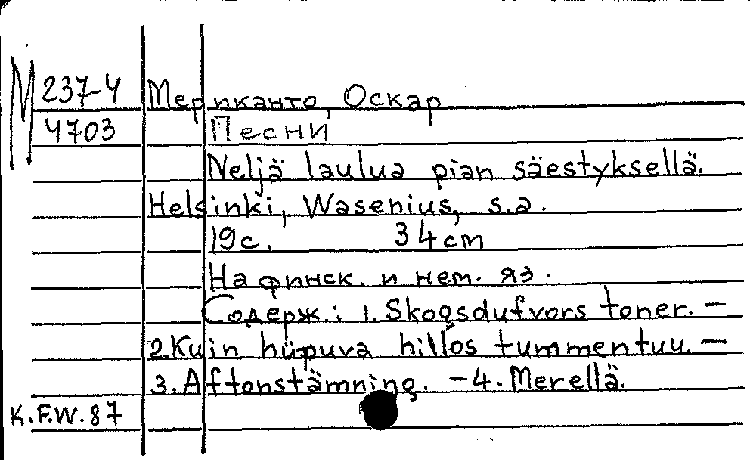 М 237-4 Мериканто, Оскар
4703 Песни
Neljä laulua pian säestyksellä.
Helsinki, Wasenius, s.a.
19c. 34cm
На финск. и нем. яз.
Содерж.: 1. Skogsdufvors toner. –
2. Kuin hüpuva hillos tummentuu. –
3. Aftonstämning. – 4. Merellä.
K.F.W. 87